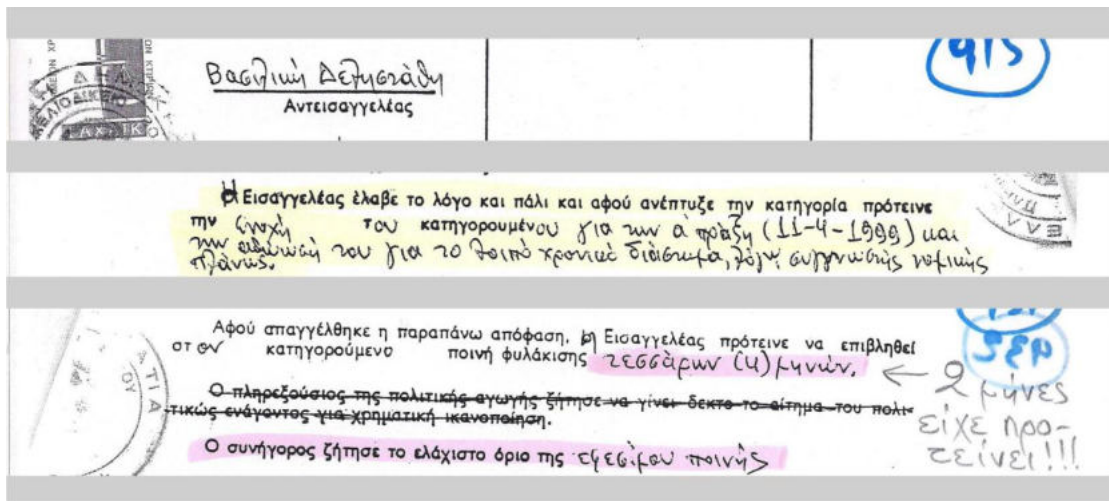 915
Βασιλική Δεληστάθη
Αντεισαγγελέας
Η Εισαγγελέας έλαβε το λόγο και πάλι και αφού ανέπτυξε την κατηγορία πρότεινε
την ενοχή του κατηγορουμένου για την α πράξη (11-4-1999) και
την αθώωσή του για το λοιπό χρονικό διάστημα, λόγω συγγνωστής νομικής
πλάνης.
Αφού απαγγέλθηκε η παραπάνω απόφαση, η Εισαγγελέας πρότεινε να επιβληθεί
στον κατηγορούμενο ποινή φυλάκισης τεσσάρων (4) μηνών.
Ο πληρεξούσιος της πολιτικής αγωγής ζήτησε να γίνει δεκτο το αίτημα του πολι-
τικώς ενάγοντος για χρηματική ικανοποίηση.
Ο συνήγορος ζήτησε το ελάχιστο όριο της εφεσίμου ποινής
← 2 μήνες
είχε προ-
τείνει!!!